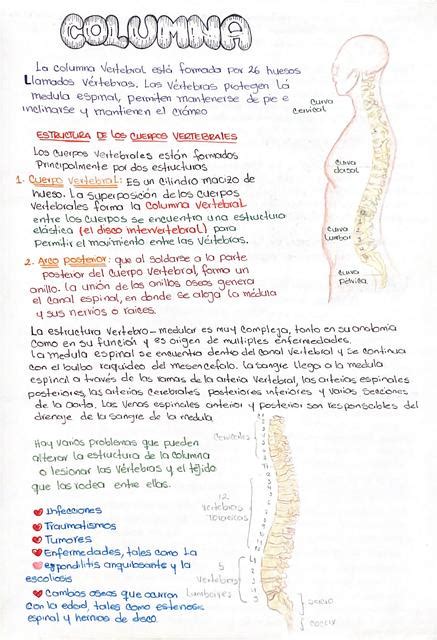 COLUMNA
La columna vertebral está formada por 26 huesos
Llamados vértebras. Las vértebras protegen la
medula espinal, permiten mantenerse de pie e
inclinarse y mantienen el cráneo
ESTRUCTURA DE LOS CUERPOS VERTEBRALES
Los cuerpos vertebrales están formados
Principalmente por dos estructuras
1. Cuerpo vertebral: Es un cilindro macizo de
hueso. La superposición de los cuerpos
vertebrales forma la columna vertebral
entre los cuerpos se encuentra una estructura
elástica (el disco intervertebral) para
permitir el movimiento entre las vértebras.
2. Arco posterior: que al soldarse a la parte
posterior del cuerpo vertebral, forma un
anillo. La unión de los anillos oseos genera
el canal espinal, en donde se aloja la médula
y sus nervios o raices.
Curva
cervical
Curva
dorsal
Curva
lumbar
Curva
Pélvica
La estructura vertebro-medular es muy compleja, tanto en su anatomia
como en su función y es origen de multiples enfermedades.
la medula espinal se encuentra dentro del canal vertebral y se continua
con el bulbo raquideo del mesencefalo. la sangre llega a la medula
espinal a través de las ramas de la arteria vertebral, las arterias espinales
posteriores, las arterias cerebrales posteriores inferiores y varias secciones
de la aorta. Las venas espinales anterior y posterior son responsables del
drenaje de la sangre de la medula
Hay varios problemas que pueden
alterar la estructura de la columna
o lesionar las vértebras y el tejido
que las rodea entre ellas.
Infecciones
Traumatismos
Tumores
Enfermedades, tales como la
espondilitis anquilosante y la
escoliosis
Cambios oseos que ocurren
con la edad, tales como estenosis
espinal y hernias de disco.
Cervicales
12
vertebras
Toracicas
5
Vertebras
lumbares
sacro
coccix